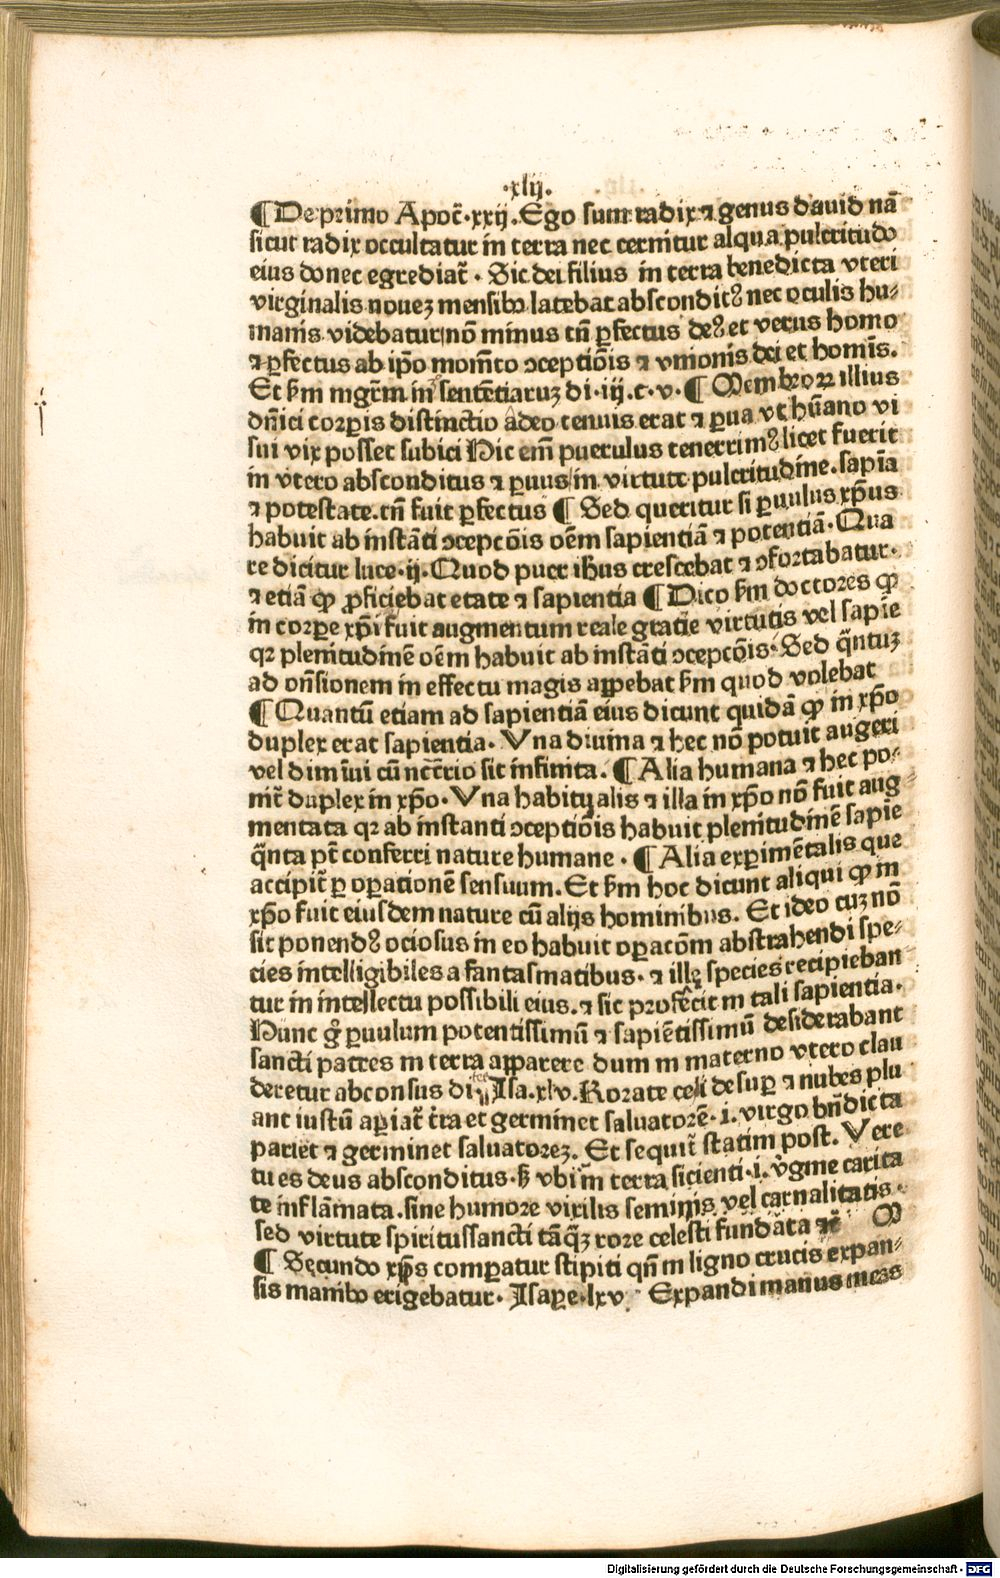 ·xlij.
¶ De primo Apoc̄·xxij. Ego sum radix ⁊ genus dauid nā
sicut radix occultatur in terra nec cernitur aliqua pulcritudo
eius donec egrediat᷑ · Sic dei filius in terra benedicta vteri
virginalis nouez mensibꝫ latebat abscondit⁹ nec oculis hu-
manis videbatur nō minus tn̄ ꝑfectus de⁹ et verus homo
⁊ ꝑfectus ab ip̄o momēto ↄceptiōis ⁊ vnionis dei et homīs.
Et ẜm mgr̄m in sentētiaruz di·iij.c.v. ¶ Membroꝝ illius
dn̄ici corꝑis distinctio adeo tenuis erat ⁊ ꝑua vt hūano vi
sui vix posset subici Hic em̄ puerulus tenerrim⁹ licet fuerit
in vtero absconditus ⁊ ꝑuus in virtute pulcritudine. sapīa
⁊ potestate. tn̄ fuit ꝑfectus ¶ Sed queritur si ꝑuulus xp̄us
habuit ab instāti ↄcepcōis oēm sapientiā ⁊ potentiā· Qua
re dicitur luce·ij. Quod puer ih̄us crescebat ⁊ ↄfortabatur·
⁊ etiā ꝙ ꝓficiebat etate ⁊ sapientia ¶ Dico ẜm doctores ꝙ
in corꝑe xp̄i fuit augmentum reale gratie virtutis vel sapīe
qꝛ plenitudinē oēm habuit ab instāti ↄcepcōis· Sed q̄ntuz
ad on̄sionem in effectu magis apꝑebat ẜm quod volebat
¶ Quantū etiam ad sapientiā eius dicunt quidā ꝙ in xp̄o
duplex erat sapientia. Vna diuina ⁊ hec nō potuit augeri
vel diminui cū nc̄c̄rio sit infinita. ¶ Alia humana ⁊ hec po-
nit᷑ duplex in xp̄o. Vna habitualis ⁊ illa in xp̄o nō fuit aug-
mentata qꝛ ab instanti ↄceptiōis habuit plenitudinē sapīe
q̄nta pt̄ conferri nature humane · ¶ Alia experimētalis que
accipit᷑ ꝑ oꝑationē sensuum. Et ẜm hoc dicunt aliqui ꝙ in
xp̄o fuit eiusdem nature cū alijs hominibus. Et ideo cuz nō
sit ponend⁹ ociosus in eo habuit oꝑacōm abstrahendi spe-
cies intelligibiles a fantasmatibus. ⁊ ille species recipieban
tur in intellectu possibili eius. ⁊ sic profecit in tali sapientia.
Hunc g̊ ꝑuulum potentissimū ⁊ sapiētissimū desiderabant
sancti patres in terra apꝑarere dum in materno vtero clau
deretur abconsus Isa.xlv. Rorate celi desuꝑ ⁊ nubes plu
ant iustū aꝑiat᷑ t̄ra et germinet saluatorē. i. virgo bn̄dicta
pariet ⁊ germinet saluatorez. Et sequit᷑ statim post. Vere
tu es deus absconditus. ẜꝫ vbi in terra sicienti·i. v̄gine carita
te inflāmata. sine humore virilis seminis vel carnalitatis.
sed virtute spiritussancti tāqꝫ rore celesti fundata ⁊c̄ M
¶ Secundo xp̄s comꝑatur stipiti qn̄ in ligno crucis expan-
sis manibꝫ erigebatur. Isaye·lxv Expandi manus meas
Digitalisierung gefördert durch die Deutsche Forschungsgemeinschaft · DFG